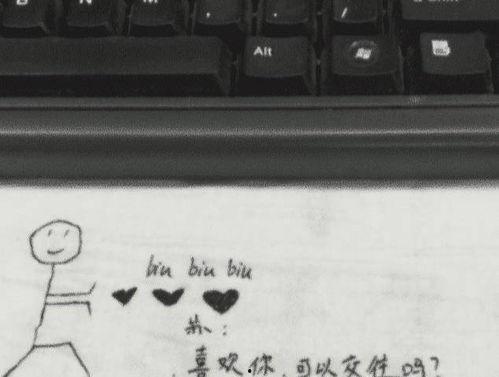 B N M , . /
Alt
biu biu biu
喜欢你,可以交往吗?